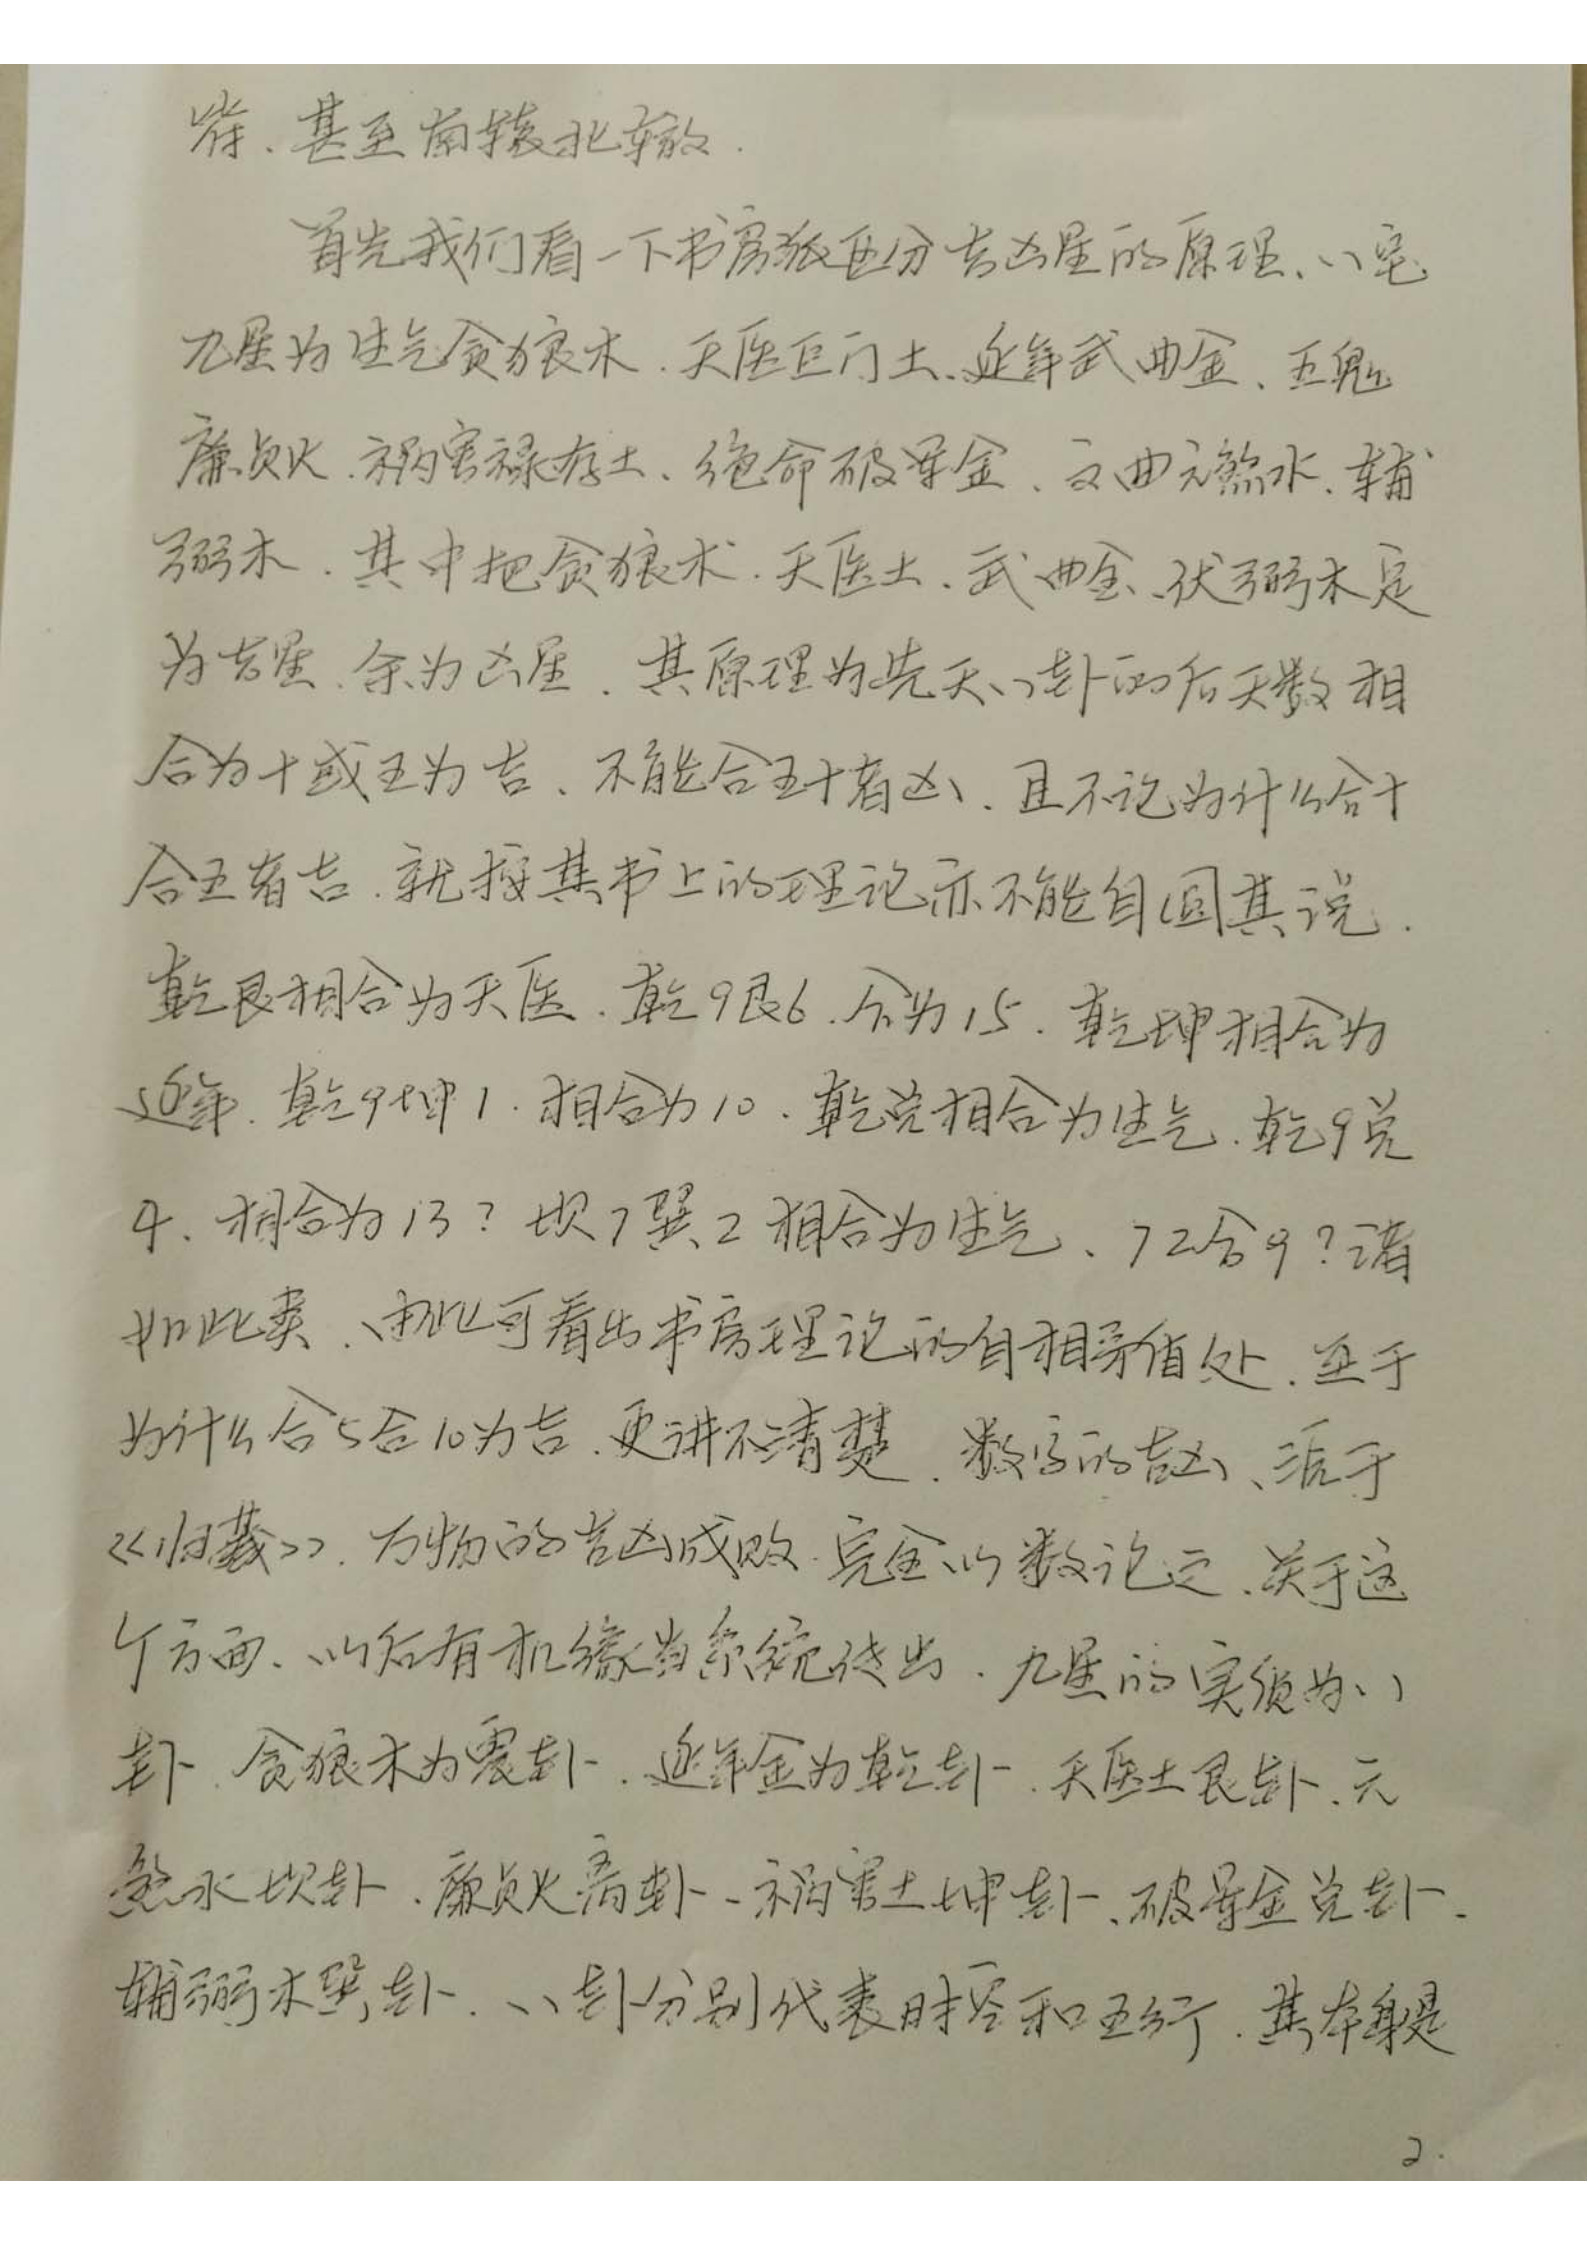 符、甚至南辕北辙.
首先我们看一下书房派区分吉凶星的原理、八宅
九星为生气贪狼木.天医巨门土、延年武曲金、五鬼
廉贞火、祸害禄存土、绝命破军金、文曲六煞水、辅
弼木.其中把贪狼木.天医土、武曲金、伏弼木定
为吉星、余为凶星.其原理为先天八卦的后天数相
合为十或五为吉、不能合五十者凶、且不论为什么合十
合五者吉、就按其书上的理论亦不能自圆其说.
乾艮相合为天医.乾9艮6.合为15.乾坤相合为
延年.乾9坤1.相合为10.乾兑相合为生气、乾9兑
4、相合为13?坎7巽2相合为生气、72合9?诸
如此类、由此可看出书房理论的自相矛盾处、至于
为什么合5合10为吉、更讲不清楚.数字的吉凶、源于
《归藏》、万物的吉凶成败.完全以数论之、关于这
个方面、以后有机缘当系统传出.九星的实质为八
卦.贪狼木为震卦.延年金为乾卦.天医土艮卦、六
煞水坎卦.廉贞火离卦、祸害土坤卦、破军金兑卦、
辅弼木巽卦、八卦分别代表时空和五行.其本身是
2.